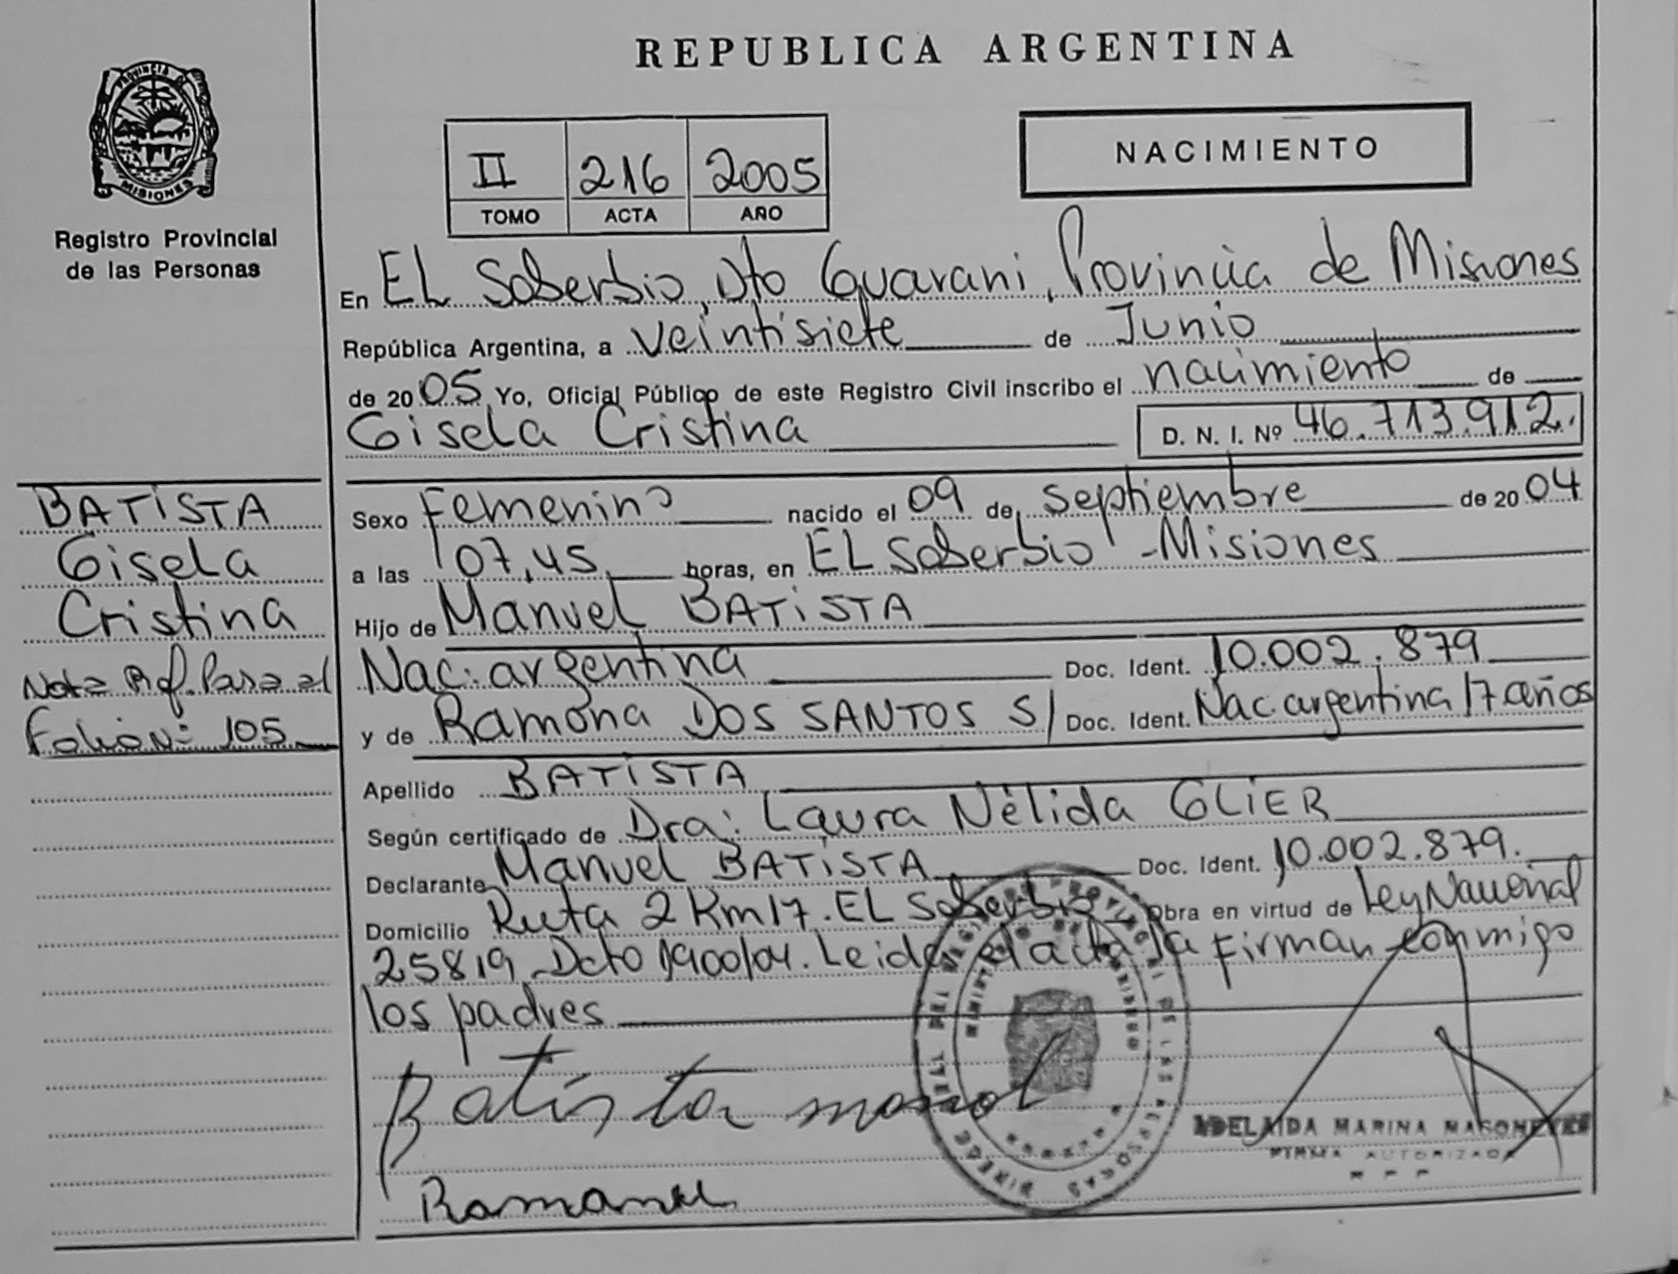 REPUBLICA ARGENTINA
PROVINCIA DE
MISIONES
Registro Provincial
de las Personas
II 216 2005
TOMO ACTA AÑO
NACIMIENTO
En EL Soberbio, Dto Guarani, Provincia de Misiones
República Argentina, a veintisiete de Junio
de 2005 Yo, Oficial Público de este Registro Civil inscribo el nacimiento de
Gisela Cristina D. N. I. Nº 46.713.912.
BATISTA
Gisela
Cristina
Nota Ref. Pasa al
Folio Nº 105
Sexo Femenino nacido el 09 de septiembre de 2004
a las 07,45 horas, en EL Soberbio - Misiones
Hijo de Manuel BATISTA
Nac. argentina Doc. Ident. 10.002.879
y de Ramona DOS SANTOS S/ Doc. Ident. Nac. argentina 17 años
Apellido BATISTA
Según certificado de Dra: Laura Nélida GLIER
Declarante Manuel BATISTA Doc. Ident. 10.002.879.
Domicilio Ruta 2 Km 17. EL Soberbio Obra en virtud de Ley Nacional
25819 Dcto 1900/04. Leida el acta la firman conmigo
los padres
Batista
Ramona
ADELAIDA MARINA
FIRMA AUTORIZADA